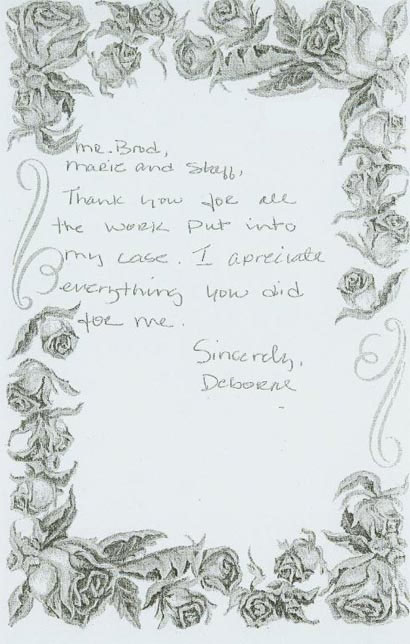 Mr. Brod,
Marie and Staff,
Thank you for all
the work put into
my case. I apreciate
everything you did
for me.
Sincerely,
Deborne